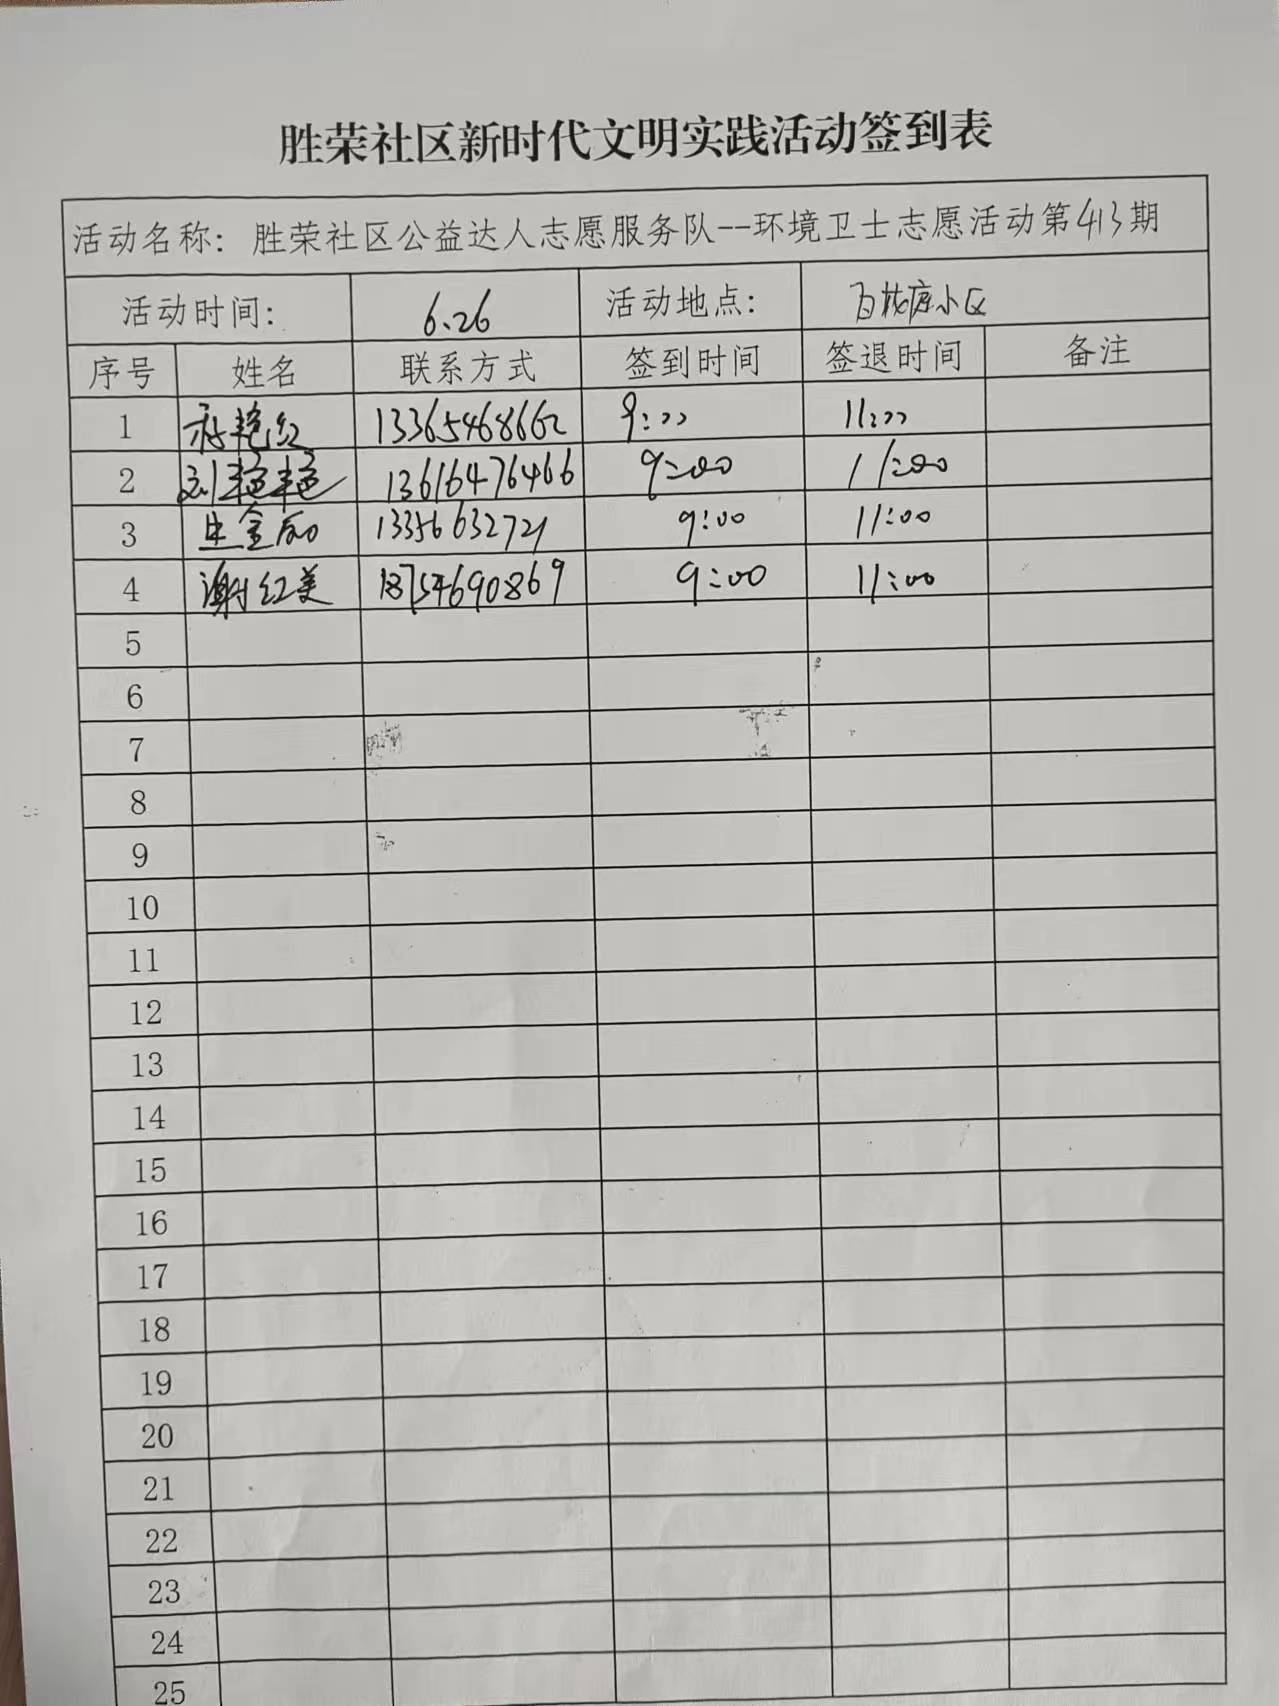 胜荣社区新时代文明实践活动签到表
活动名称: 胜荣社区公益达人志愿服务队--环境卫士志愿活动第413期
活动时间: 6.26 活动地点: 小区
序号 姓名 联系方式 签到时间 签退时间 备注
1 艳红 13365468662 9:00 11:00
2 刘艳艳 13616476466 9:00 11:00
3 生金 13356632721 9:00 11:00
4 谢红美 18754690869 9:00 11:00
5
6
7
8
9
10
11
12
13
14
15
16
17
18
19
20
21
22
23
24
25